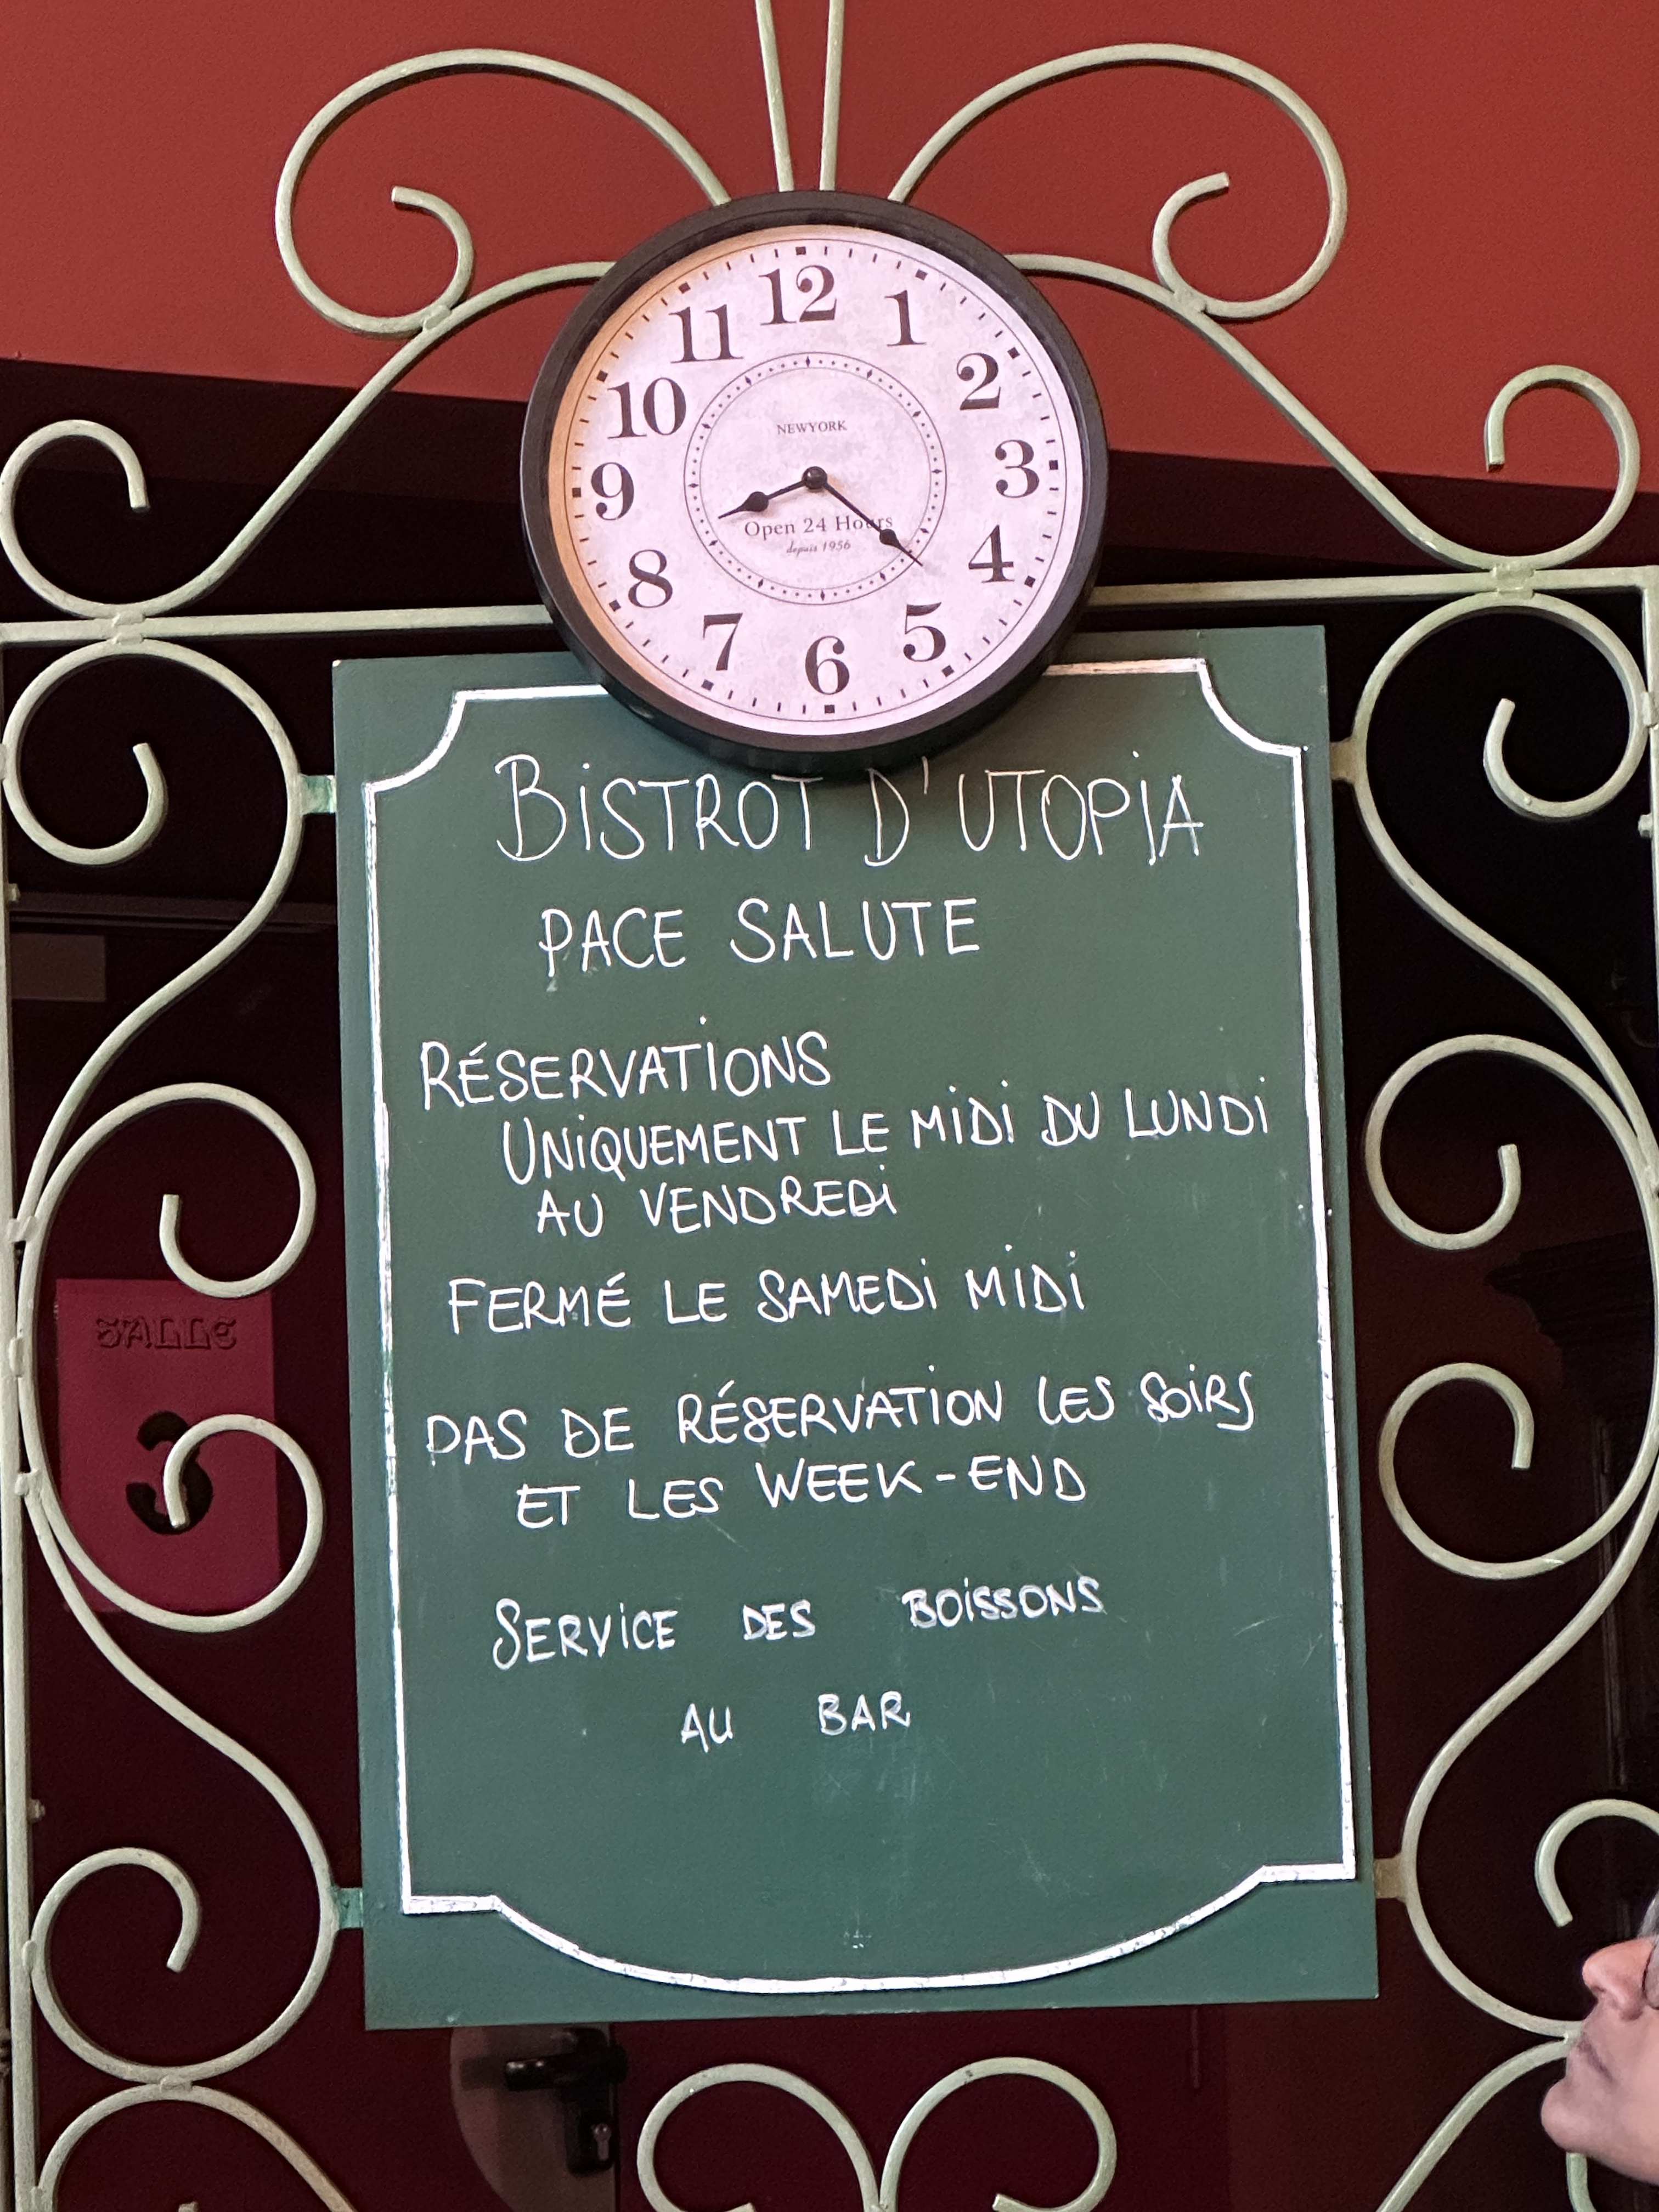 12
11 1
10 2
NEWYORK
9 3
Open 24 Hours
depuis 1956
8 4
7 5
6
BiSTROT D'UTOPiA
PACE SALUTE
RÉSERVATiONS
UNiQUEMENT LE MiDi DU LUNDi
AU VENDREDi
FERMÉ LE SAMEDi MiDi
PAS DE RÉSERVATiON LES SOiRS
ET LES WEEK-END
SERViCE DES BOiSSONS
AU BAR
SALLE
3